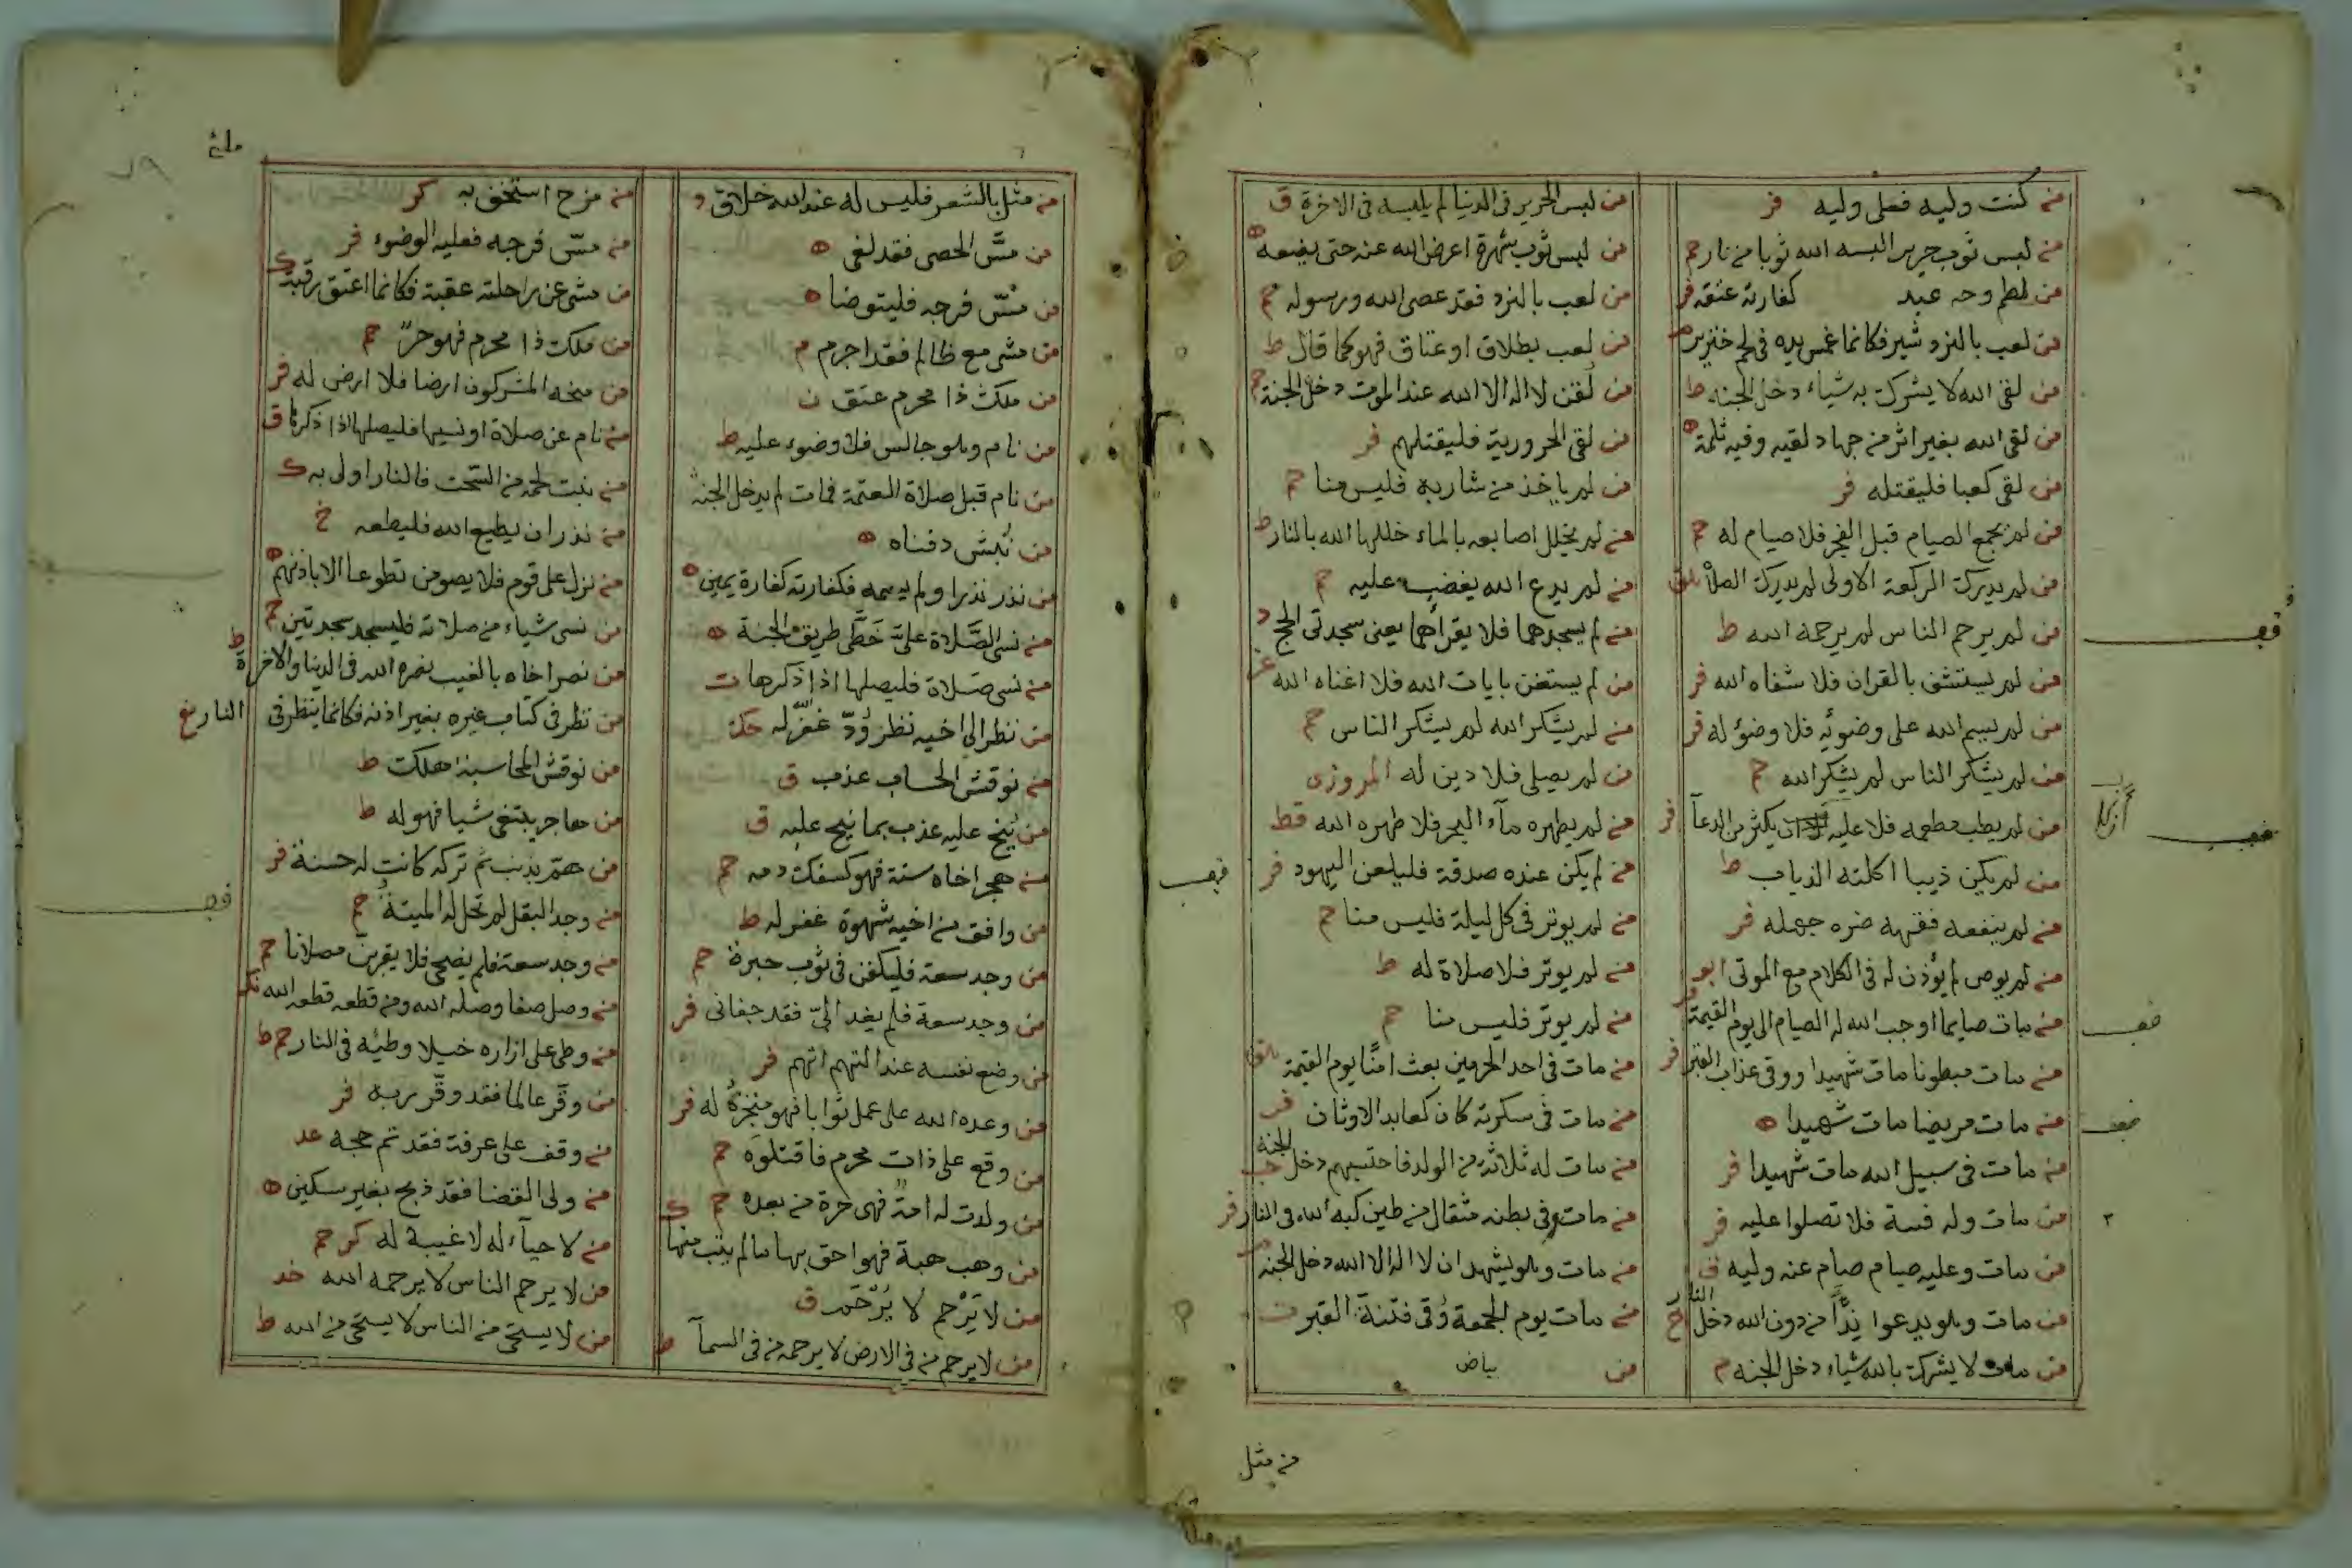 من كنت وليه فعلى وليه فر
من لبس ثوب حرير البسه الله ثوبا من نار حم
من لطم وجه عبد كفارته عتقه فر
من لعب بالنرد شير فكانما غمس يده في لحم خنزير م
من لقى الله لا يشرك به شياء دخل الجنه ط
من لقى الله بغير اثر من جهاد لقيه وفيه ثلمة ه
من لقى كعبا فليقتله فر
من لم يجمع الصيام قبل الفجر فلا صيام له حم
من لم يدرك الركعة الاولى لم يدرك الصلاة
من لم يرحم الناس لم يرحمه الله ط
من لم يستشف بالقران فلا شفاه الله فر
من لم يسم الله على وضوئه فلا وضؤ له فر
من لم يشكر الناس لم يشكر الله حم
من لم يطب مطعمه فلا عليه ان يكثر من الدعآ فر
من لم يكن ذيبا اكلته الذياب ط
من لم ينفعه فقهه ضره جهله فر
من لم يوص لم يؤذن له في الكلام مع الموتى ابو
من مات صايما اوجب الله له الصيام الى يوم القيمة فر
من مات مبطونا مات شهيدا ووقى عذاب القبر فر
من مات مريضا مات شهيدا ه
من مات في سبيل الله مات شهيدا فر
من مات وله فلا تصلوا عليه فر
من مات وعليه صيام صام عنه وليه ق
من مات وهو يدعوا ندًّا من دون الله دخل النار خ
من مات لا يشرك بالله شياء دخل الجنه م
من لبس الحرير في الدنيا لم يلبسه في الاخرة ق
من لبس ثوب شهرة اعرض الله عنه حتى يضعه ه
من لعب بالنرد فقد عصى الله ورسوله حم
من لعب بطلاق او عتاق فهو كما قال ط
من لُقن لا اله الا الله عند الموت دخل الجنة حم
من لقى الحرورية فليقتلهم فر
من لم ياخذ من شاربه فليس منا حم
من لم يخلل اصابعه بالماء خللها الله بالنار ط
من لم يدع الله يغضب عليه حم
من لم يسجدهما فلا يقرأهما يعنى سجدتى الحج د
من لم يستغن بايات الله فلا اغناه الله
من لم يشكر الله لم يشكر الناس حم
من لم يصلى فلا دين له المروزى
من لم يطهره مآء البحر فلا طهره الله قط
من لم يكن عنده صدقة فليلعن اليهود فر
من لم يوتر في كل ليلة فليس منا حم
من لم يوتر فلا صلاة له ط
من لم يوتر فليس منا حم
من مات في احد الحرمين بعث امنًا يوم القيمة
من مات في سكرته كان كعابد الاوثان فر
من مات له ثلاثة من الولد فاحتسبهم دخل الجنة حب
من مات وفي بطنه مثقال من طين كبه الله في النار فر
من مات وهو يشهد ان لا اله الا الله دخل الجنه م
من مات يوم الجمعة وُقى فتنة القبر ت
من بياض
من مثل
من مثل بالشعر فليس له عند الله خلاق
من مسَّ الحصى فقد لغى ه
من مسّ فرجه فليتوضا ه
من مشى مع ظالم فقد اجرم م
من ملك ذا محرم عتق ن
من نام وهو جالس فلا وضوء عليه ط
من نام قبل صلاة العتمة فمات لم يدخل الجنة
من نُبش دفناه ه
من نذر نذرا ولم يسمه فكفارته كفارة يمين ه
من نسى الصَّلاة علىَّ خَطَّى طريق الجنة ه
من نسى صلاة فليصلها اذا ذكرها ت
من نظر الى اخيه نظر وُدّ غفر له
من نوقش الحساب عذب ق
من نيح عليه عذب بما نيح عليه ق
من هجر اخاه سنة فهو كسفك دمه حم
من وافق من اخيه شهوة غفر له ط
من وجد سعة فليكفن في ثوب حبرة حم
من وجد سعة فلم يغد الىّ فقد جفانى فر
من وضع نفسه عند التهم اتهم فر
من وعده الله على عمل ثوابا فهو منجزهُ له فر
من وقع على ذات محرم فاقتلوه حم
من ولدت له امة فهى حرة من بعده حم
من وهب هبة فهو احق بها ما لم يثب منها ك
من لا يَرْحم لا يُرْحَم ق
من لا يرحم من في الارض لا يرحمه من في السمآ ط
من مزح استخف به كر
من مسّ فرجه فعليه الوضوء فر
من مشى عن راحلته عقبة فكانما اعتق رقبة ك
من ملك ذا محرم فهو حرّ حم
من منحه المشركون ارضا فلا ارض له فر
من نام عن صلاة او نسيها فليصلها اذا ذكرها ق
من نبت لحمه من السحت فالنار اولى به ك
من نذر ان يطيع الله فليطعه خ
من نزل على قوم فلا يصومن تطوعا الا باذنهم ه
من نسى شياء من صلاته فليسجد سجدتين حم
من نصر اخاه بالغيب نصره الله في الدنيا والاخرة ط
من نظر في كتاب غيره بغير اذنه فكانما ينظر في النار
من نوقش المحاسبة هلك ط
من هاجر يبتغى شيا فهو له ط
من همّ بذنب ثم تركه كانت له حسنة فر
من وجد البقل لم تحل له الميتة حم
من وجد سعة فلم يضحى فلا يقربن مصلانا حم
من وصل صفا وصله الله ومن قطعه قطعه الله نك
من وطى على ازاره خيلا وطيئه في النار حم ط
من وقّر عالما فقد وقّر ربه فر
من وقف على عرفة فقد تم حجه عد
من ولى القضا فقد ذبح بغير سكين ه
من لا حيآء له لا غيبة له كر حم
من لا يرحم الناس لا يرحمه الله خد
من لا يستحى من الناس لا يستحى من الله ط